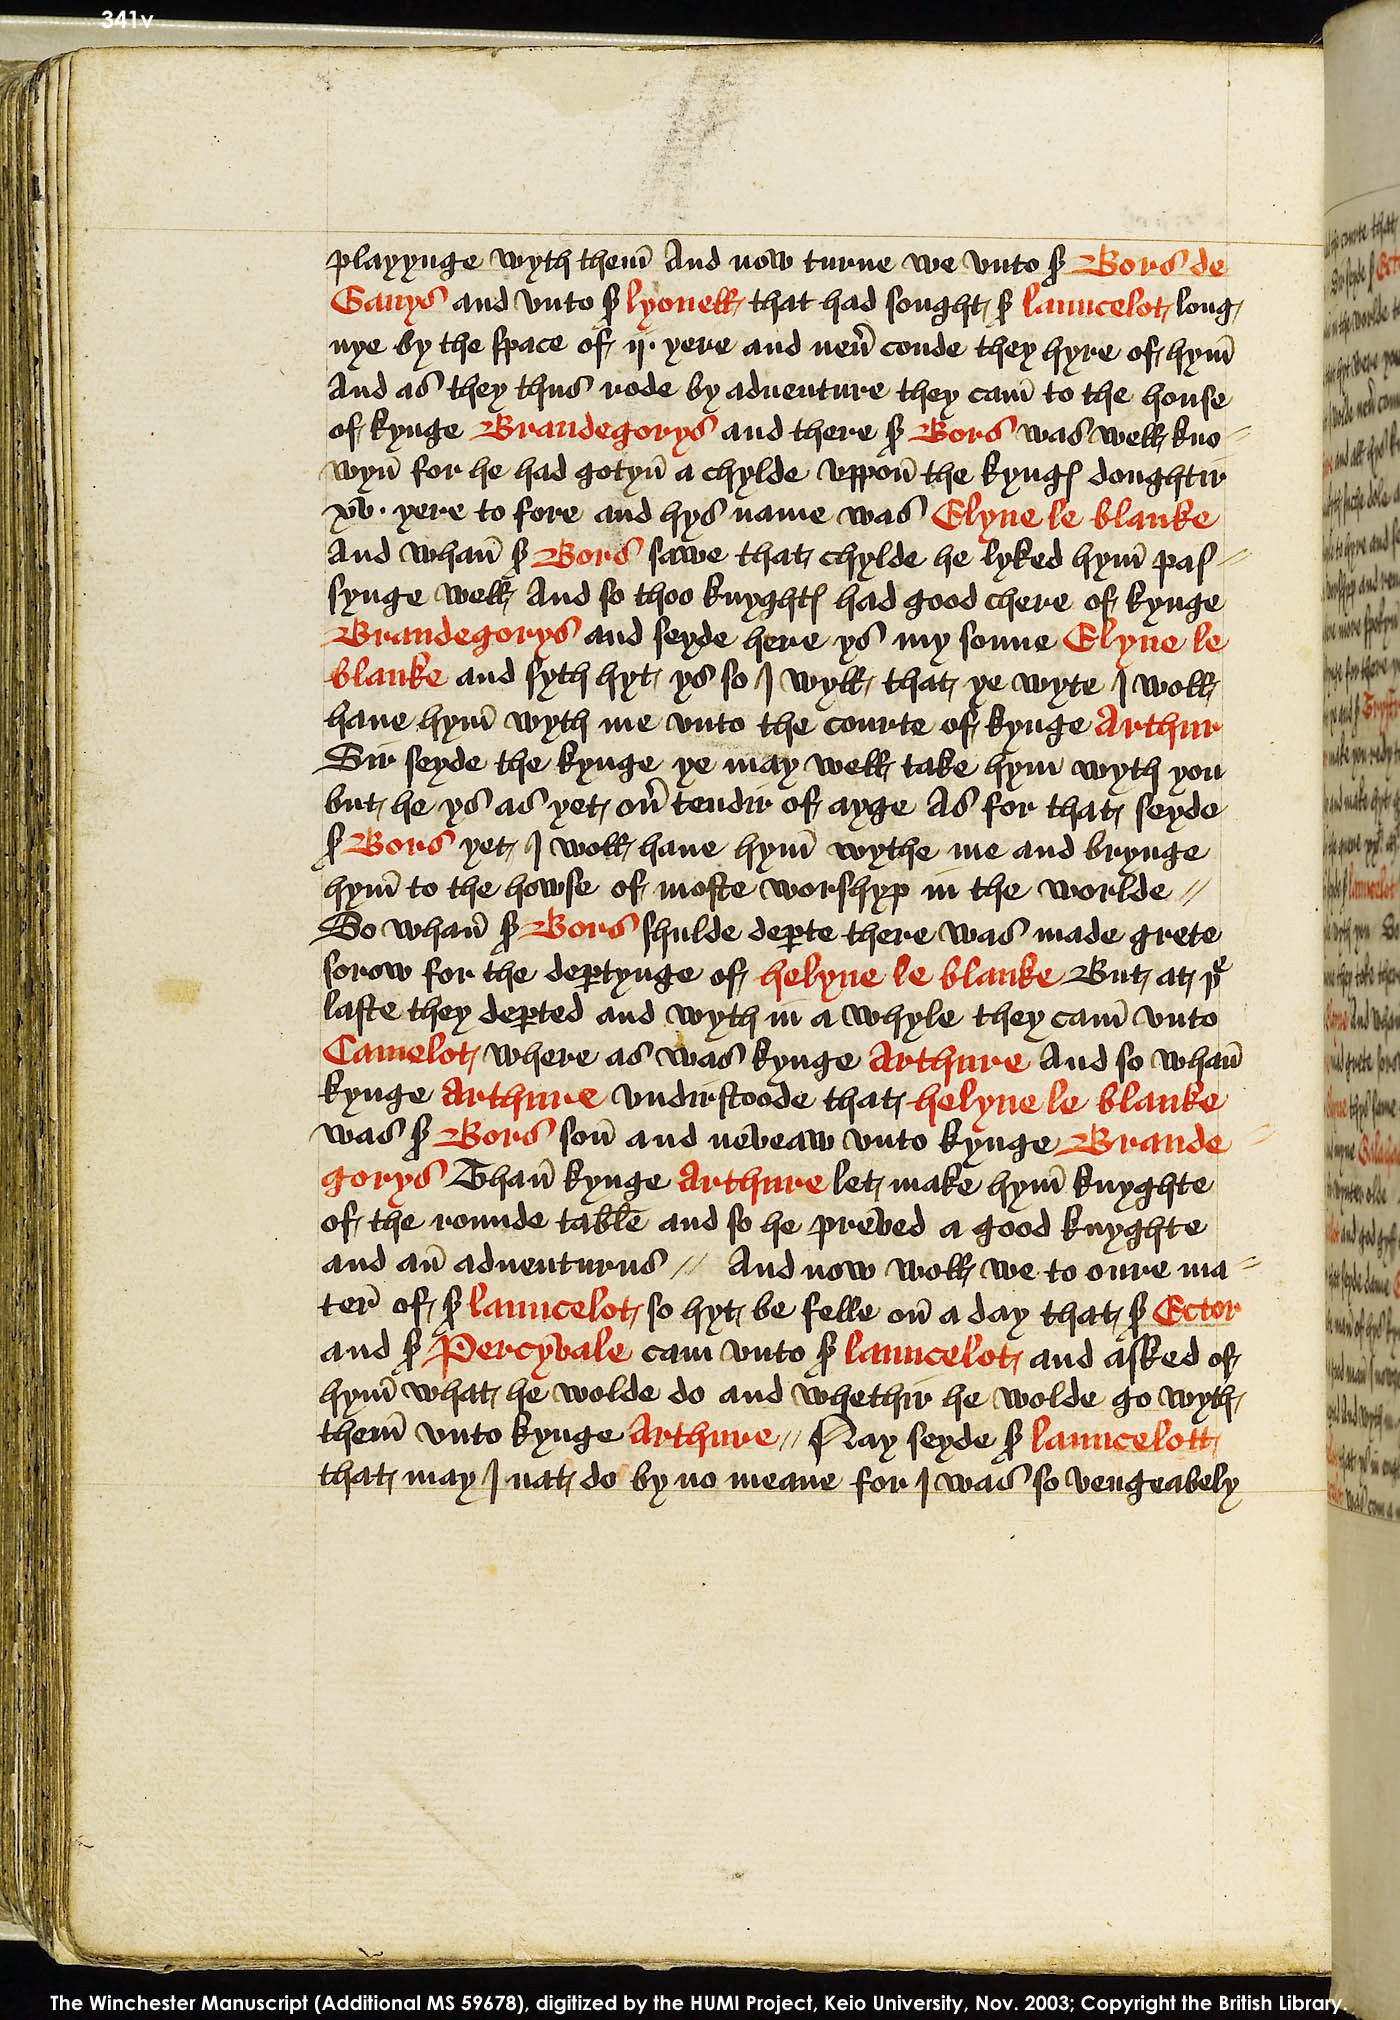 341v
playynge wyth them̄ And now turne we vnto sͬ Bors de
Ganys and vnto sͬ lyonell that had sought sͬ launcelot long
nye by the space of ij. yere and neuͬ coude they hyre of hym̄
And as they thus rode by aduenture they cam̄ to the house
of kynge Brandegorys and there sͬ Bors was well kno⸗
wyn̄ for he had gotyn̄ a chylde vppon̄ the kyngꝭ doughtir
xv. yere to fore and hys name was Elyne le blanke
And whan̄ sͬ Bors sawe that chylde he lyked hym̄ pas⸗
synge well And so thoo knyghtꝭ had good chere of kynge
Brandegorys and seyde here ys my sonne Elyne le
blanke and syth hyt ys so I wyll that ye wyte I woll
haue hym̄ wyth me vnto the courte of kynge Arthur
Sir seyde the kynge ye may well take hym wyth you
but he ys as yet ouͬ tendir of ayge As for that seyde
sͬ Bors yet I woll haue hym̄ wythe me and brynge
hym̄ to the howse of moste worshyp in the worlde //
So whan̄ sͬ Bors shulde deꝑte there was made grete
sorow for the deꝑtynge of helyne le blanke But at þͤ
laste they deꝑted and wyth in a whyle they cam̄ vnto
Camelot where as was kynge Arthure And so whan̄
kynge Arthure vndirstoode that helyne le blanke
was sͬ Bors son̄ and neveaw vnto kynge Brande⸗
gorys Than̄ kynge Arthure let make hym̄ knyghte
of the rounde table and so he preved a good knyghte
and an̄ aduenturus // And now woll we to oure ma⸗
teͬ of sͬ launcelot so hyt be felle on̄ a day that sͬ Ector
and sͬ Percyvale cam vnto sͬ launcelot and asked of
hym̄ what he wolde do and whethir he wolde go wyth
them̄ vnto kynge Arthure // Nay seyde sͬ launcelott
that may I nat do by no meane for I was so vengeabely
The Winchester Manuscript (Additional MS 59678), digitized by the HUMI Project, Keio University, Nov. 2003; Copyright the British Library.